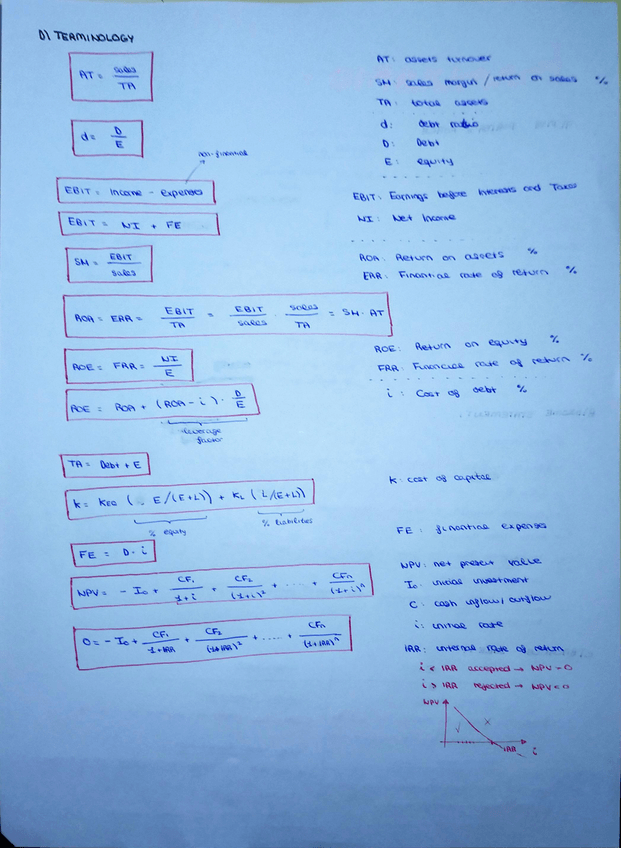 D) TERMINOLOGY
AT = sales / TA
AT: assets turnover
SM: sales margin / return on sales %
TA: total assets
d = D / E
d: debt ratio
D: Debt
E: equity
non-financial
EBIT = Income - expenses
EBIT: Earnings before Interests and Taxes
EBIT = NI + FE
NI: Net Income
SM = EBIT / sales
ROA: Return on assets %
ERR: Financial rate of return %
ROA = ERR = EBIT / TA = EBIT / sales · sales / TA = SM · AT
ROE = FRR = NI / E
ROE: Return on equity %
FRR: Financial rate of return %
ROE = ROA + (ROA - i) · D / E
leverage factor
i: Cost of debt %
TA = Debt + E
K = KEQ ( E/(E+L)) + KL (L/(E+L))
% equity
% liabilities
K: cost of capital
FE = D · i
FE: financial expenses
NPV = - Io + CF1 / 1+i + CF2 / (1+i)² + .... + CFn / (1+i)^n
NPV: net present value
Io: initial investment
C: cash inflow/outflow
i: initial rate
0 = - Io + CF1 / 1+IRR + CF2 / (1+IRR)² + .... + CFn / (1+IRR)^n
IRR: internal rate of return
i < IRR accepted → NPV = 0
i > IRR rejected → NPV < 0
NPV
IRR
i